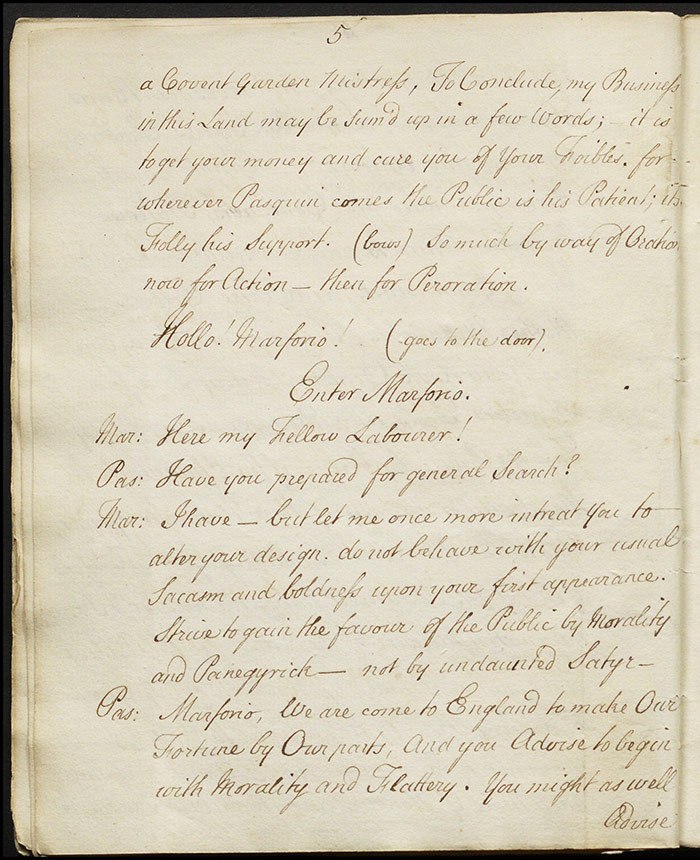 5
a Covent Garden Mistress, To Conclude, my Business
in this Land may be Sum'd up in a few Words; — it is
to get your money and cure you of Your Foibles. for
wherever Pasquin comes the Public is his Patient; its
Folly his Support. (bows) So much by way of Oration
now for Action — then for Peroration.
Hollo! Marforio! (goes to the door).
Enter Marforio.
Mar: Here my Fellow Labourer!
Pas: Have you prepared for general Search?
Mar: I have — but let me once more intreat You to
alter your design. do not behave with your usual
Sacasm and boldness upon your first appearance.
Strive to gain the favour of the Public by Morality
and Panegyrick — not by undaunted Satyr —
Pas: Marforio, We are come to England to make Our
Fortune by Our parts, And you Advise to begin
with Morality and Flattery. You might as well
Advise